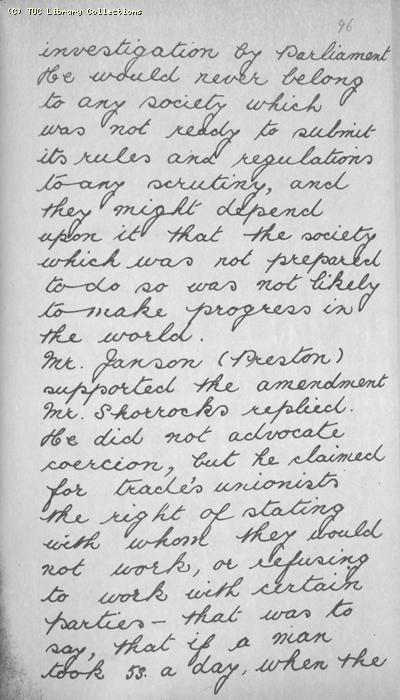 (C) TUC Library Collections
96
investigation by Parliament
He would never belong
to any society which
was not ready to submit
its rules and regulations
to any scrutiny, and
they might depend
upon it that the society
which was not prepared
to do so was not likely
to make progress in
the world.
Mr. Janson (Preston)
supported the amendment
Mr. Shorrocks replied.
He did not advocate
coercion, but he claimed
for trade's unionists
the right of stating
with whom they would
not work, or refusing
to work with certain
parties - that was to
say, that if a man
took 5s. a day, when the